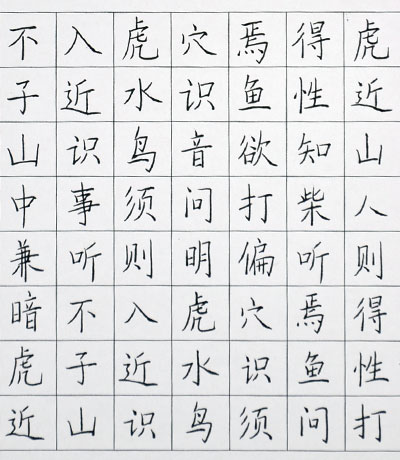 不入虎穴焉得虎
子近水识鱼性近
山识鸟音欲知山
中事须问打柴人
兼听则明偏听则
暗不入虎穴焉得
虎子近水识鱼性
近山识鸟须问打